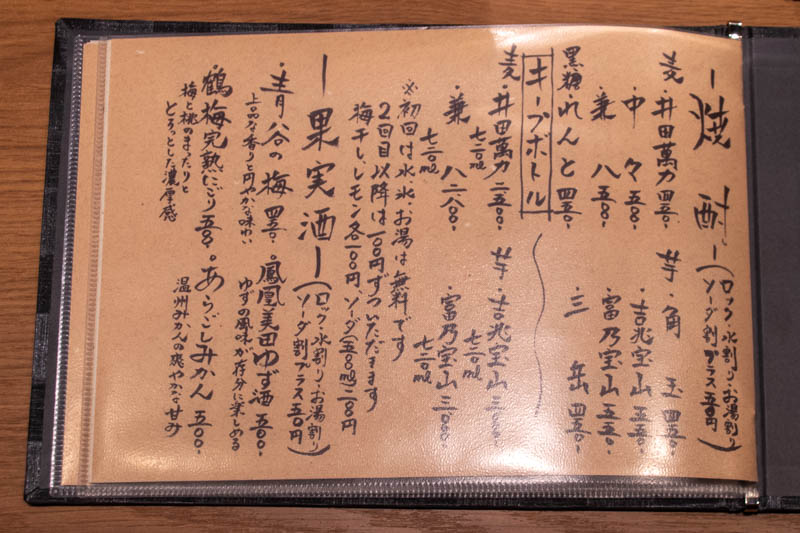 ー焼酎ー(ロック・水割り・お湯割り
ソーダ割プラス五〇円)
麦・井田萬力 四五〇・
・中々 五八〇・
・兼八 五八〇・
黒糖・れんと 四五〇・
芋・角玉 四五〇・
・吉兆宝山 五五〇・
・富乃宝山 五五〇・
・三岳 四五〇・
キープボトル
麦・井田萬力 二五〇〇・
七二〇ml
・兼八 六二八〇・
七二〇ml
芋・吉兆宝山 三〇〇〇・
七二〇ml
・富乃宝山 三一〇〇〇・
七二〇ml
※初回は水、氷、お湯は無料です
2回目以降は一〇〇円ずついただきます
梅干し、レモン各一〇〇円、ソーダ(五〇〇ml)二一〇円
ー果実酒ー(ロック・水割り・お湯割り
ソーダ割プラス五〇円)
・青谷の梅 四五〇・
上品な香りと円やかな味わい
・鳳凰美田ゆず酒 五〇〇・
ゆずの風味が存分に楽しめる
・鶴梅完熟にごり 五八〇・
梅と桃のまったりと
とろっとした濃厚感
・あらごしみかん 五〇〇・
温州みかんの爽やかな甘み